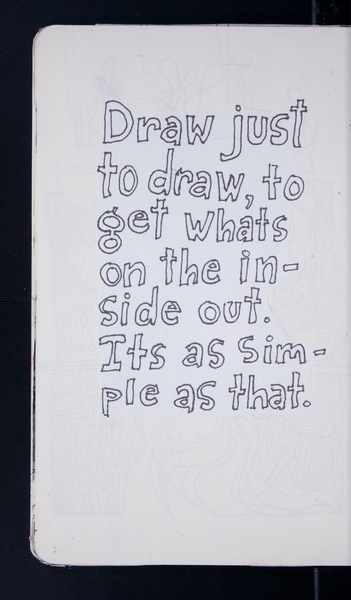 Draw just
to draw, to
get whats
on the in-
side out.
Its as sim-
ple as that.